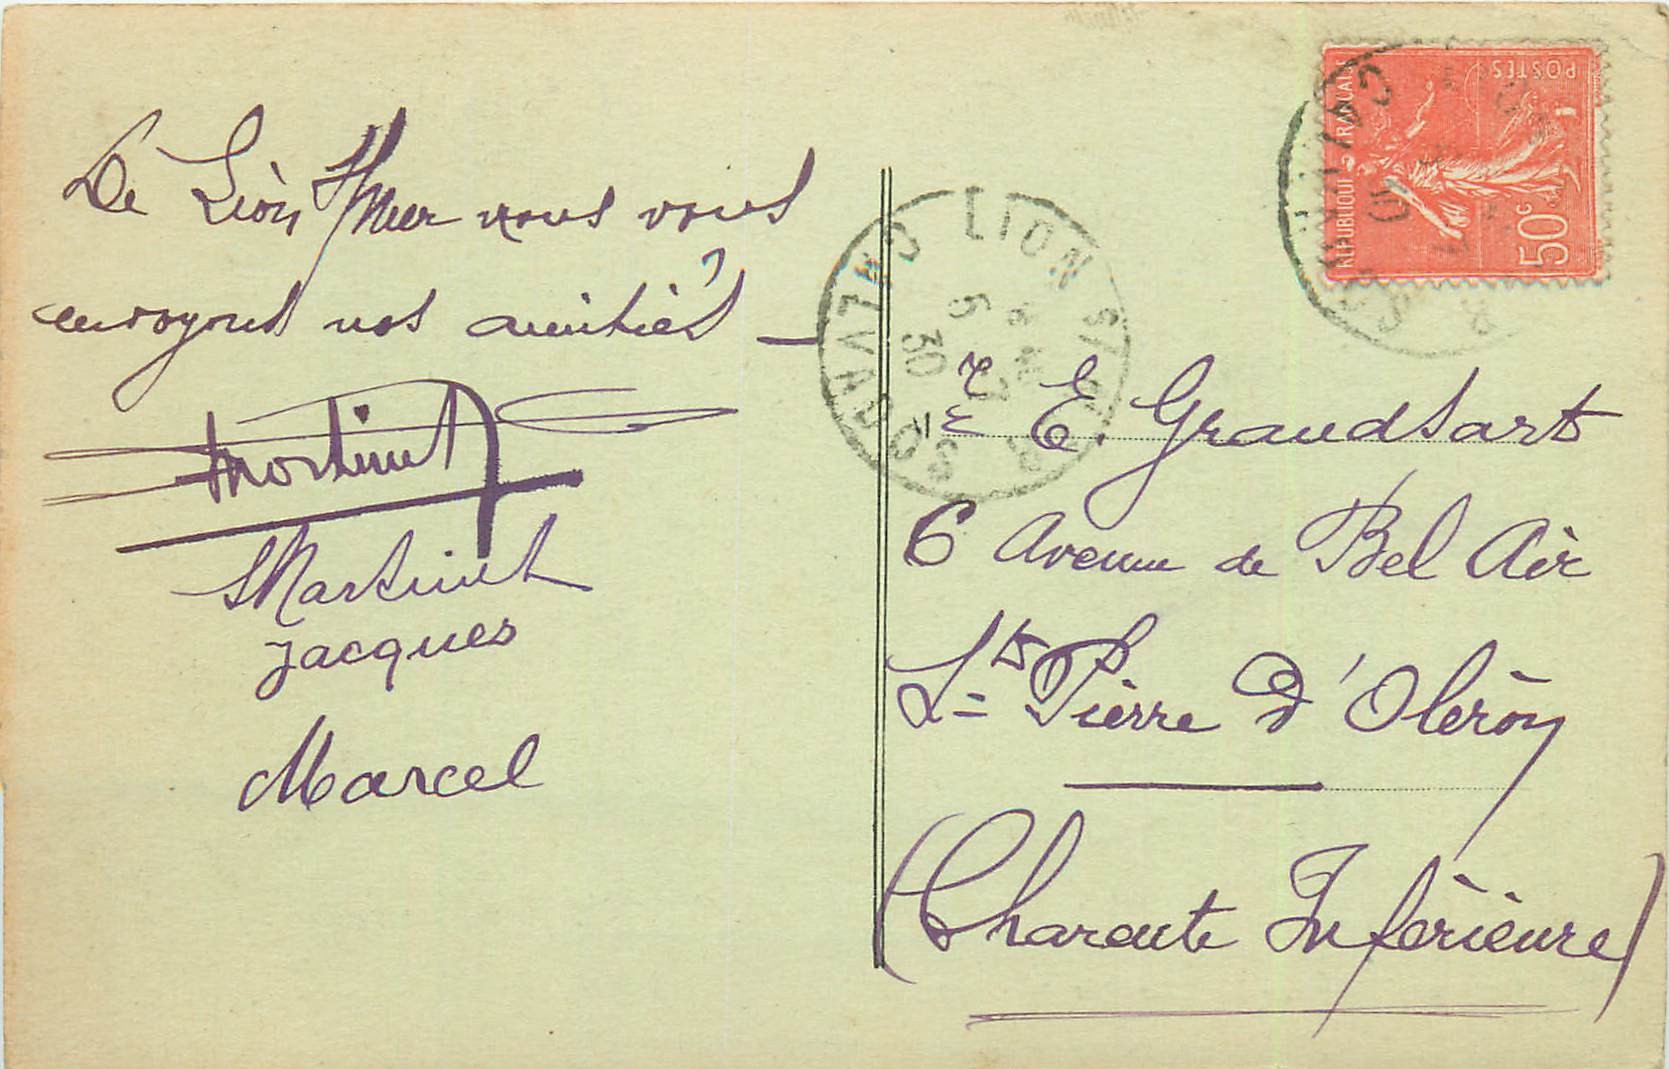 De Lion s/Mer nous vous
envoyons nos amitiés —
Martinet
Martinet
Jacques
Marcel
LION S/ MER
5 - 7
30
CALVADOS
REPUBLIQUE FRANÇAISE
POSTES
50c
E. Grandsart
6 Avenue de Bel Air
St Pierre d'Oléron
(Charente Inférieure)